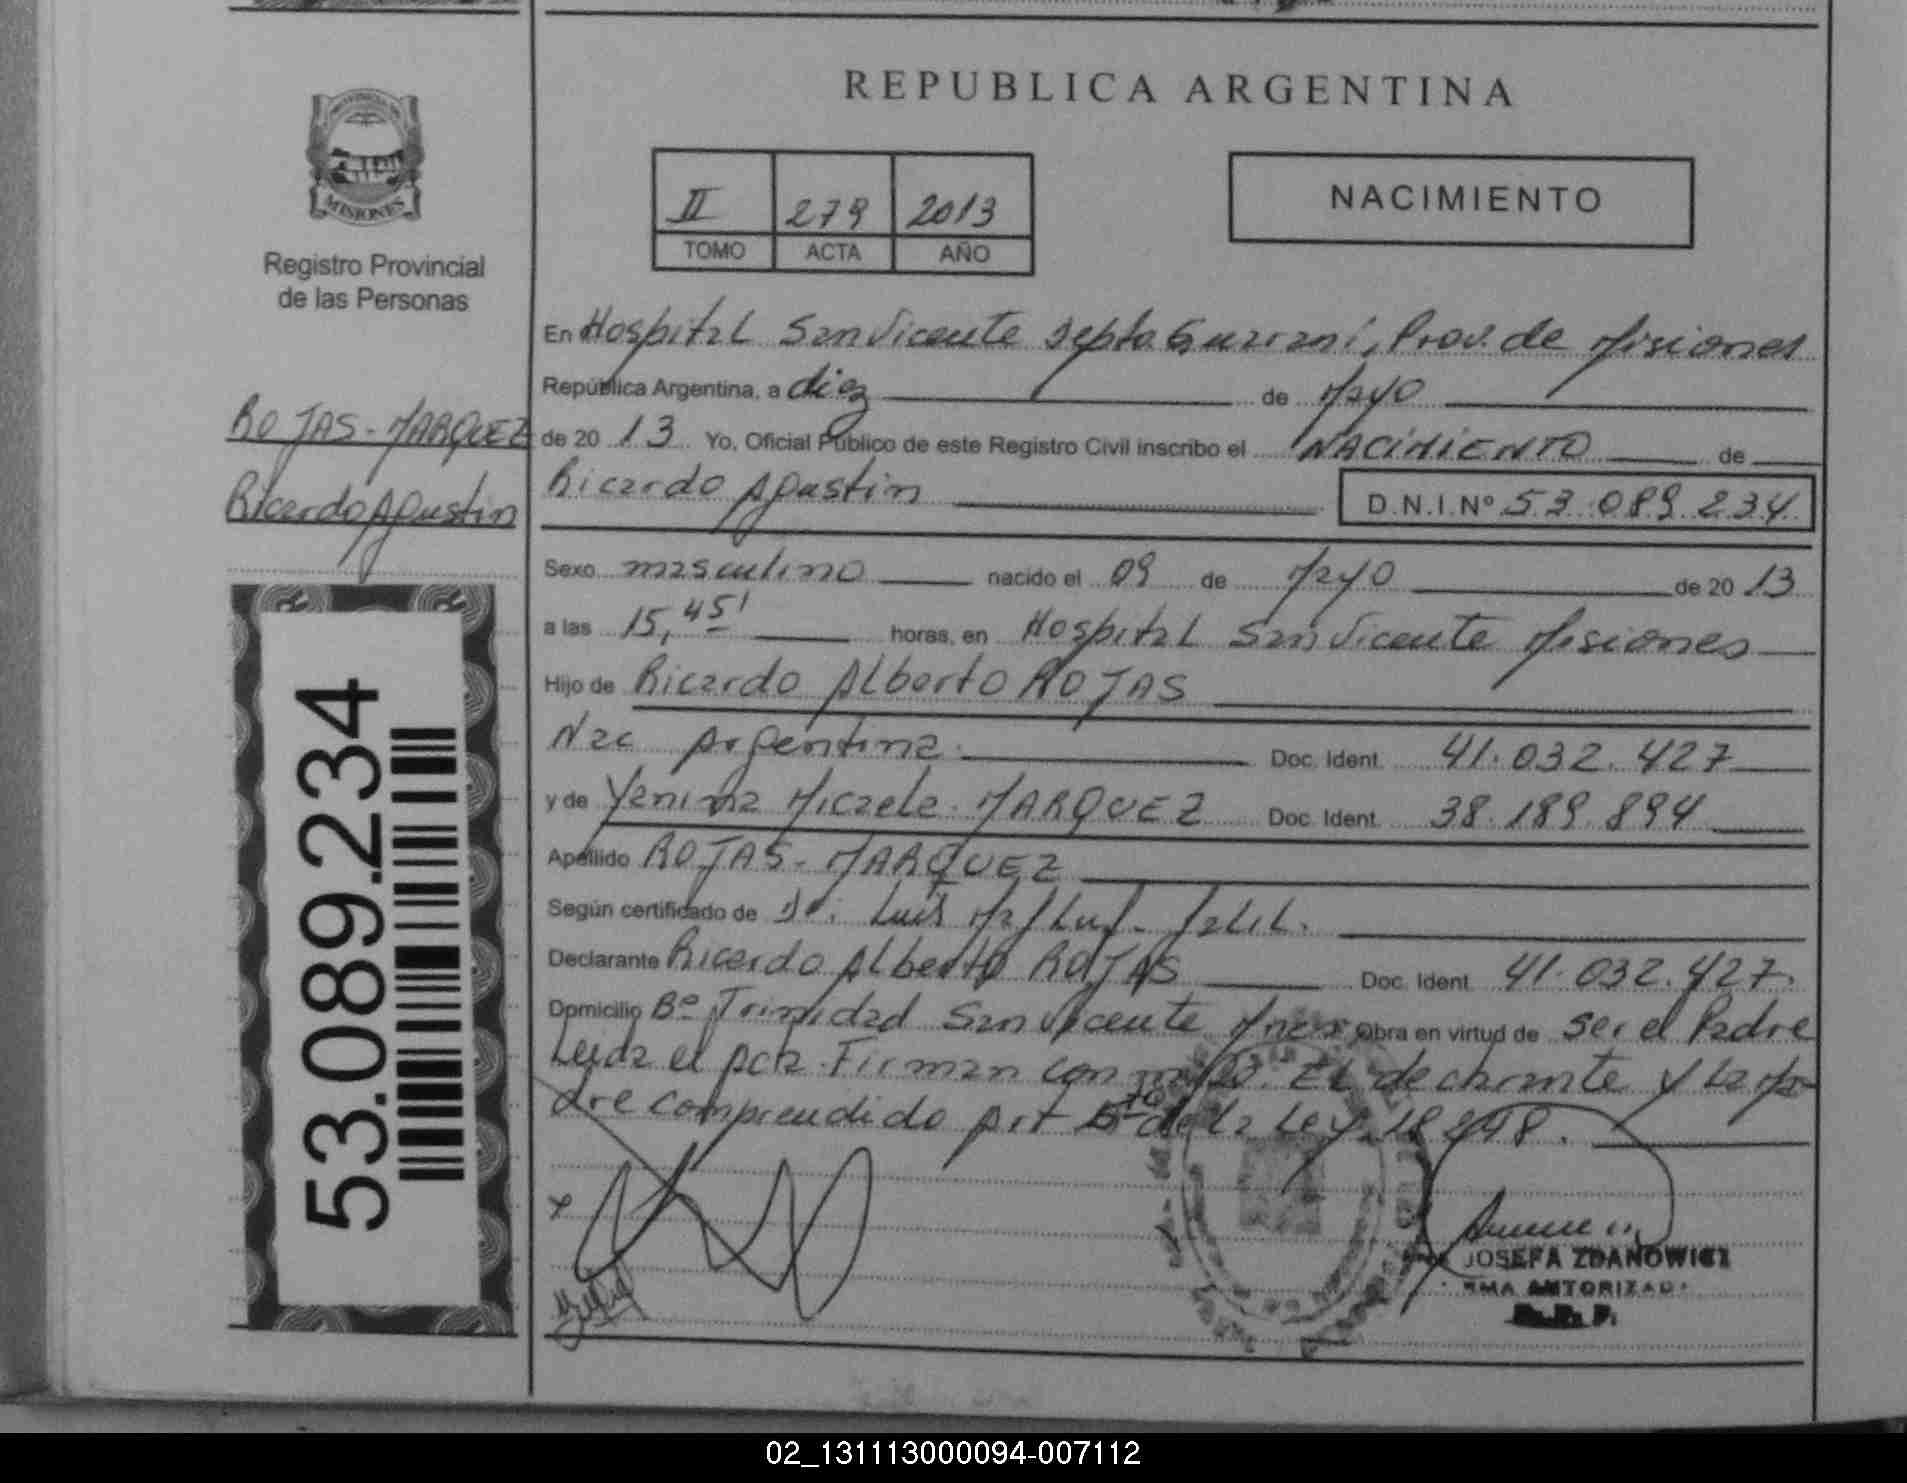 REPUBLICA ARGENTINA
PROVINCIA DE
MISIONES
Registro Provincial
de las Personas
II 279 2013
TOMO ACTA AÑO
NACIMIENTO
ROJAS-MARQUEZ
Ricardo Agustin
53.089.234
En Hospital San Vicente Depto Guarani, Prov. de Misiones
República Argentina, a diez de Mayo
de 20 13 Yo, Oficial Público de este Registro Civil inscribo el NACIMIENTO de
Ricardo Agustin D.N.I.Nº 53.089.234
Sexo masculino nacido el 09 de Mayo de 20 13
a las 15,45' horas, en Hospital San Vicente Misiones
Hijo de Ricardo Alberto ROJAS
Nac Argentina. Doc. Ident. 41.032.427
y de Yanina Micaela MARQUEZ Doc. Ident. 38.189.894
Apellido ROJAS-MARQUEZ
Según certificado de Dr: Luis Jalil.
Declarante Ricardo Alberto ROJAS Doc. Ident. 41.032.427.
Domicilio Bº Trinidad San Vicente Mnes Obra en virtud de ser el Padre
Leida el acta Firman con El declarante y la Ma-
dre comprendido Art de la Ley 18248.
JOSEFA ZDANOWICZ
FIRMA AUTORIZADA
R. P. P.
02_131113000094-007112